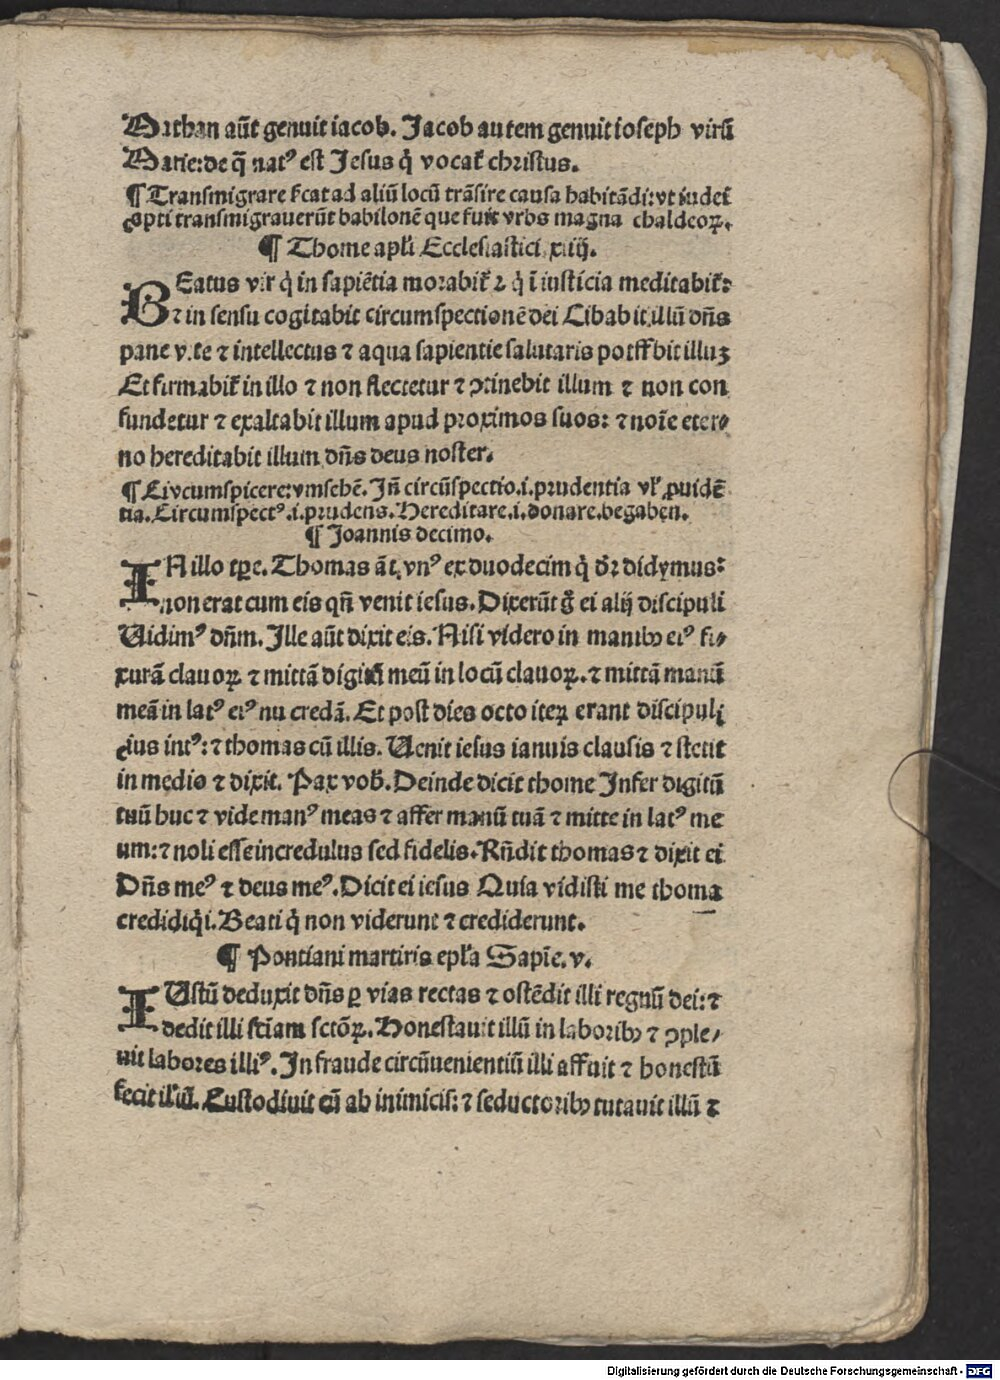 Mathan aūt genuit iacob. Jacob autem genuit ioseph virū
Marie: de q̄ natꝰ est Jesus q̇ vocat᷑ christus.
¶ Transmigrare ẜcat ad aliū locū trāsire causa habitādi: vt iudei
capti transmigrauerūt babilonē que fuit vrbs magna chaldeoꝝ.
¶ Thome apl̄i Ecclesiastici. xiiij.
BEatus vir q̇ in sapiētia morabit᷑ ⁊ q̇ ī iusticia meditabit᷑:
⁊ in sensu cogitabit circumspectionē dei Cibabit illū dn̄s
pane vite ⁊ intellectus ⁊ aqua sapientie salutaris potabit illuꝫ
Et firmabit᷑ in illo ⁊ non flectetur ⁊ ꝯtinebit illum ⁊ non con
fundetur ⁊ exaltabit illum apud proximos suos: ⁊ noīe eter⸗
no hereditabit illum dn̄s deus noster.
¶ Circumspicere: vmsehē. Jn̄ circūspectio .i. prudentia vl̓ ꝓuidē
tia. Circumspectꝰ .i. prudens. Hereditare .i. donare. begaben.
¶ Joannis decimo.
IN illo tꝑe. Thomas āt, vnꝰ ex duodecim q̇ dr̄ didymus:
non erat cum eis qn̄ venit iesus. Dixerūt g̊ ei alij discipuli
Uidimꝰ dn̄m. Jlle aūt dixit eis. Nisi videro in manibꝫ eiꝰ fi⸗
xurā clauoꝝ ⁊ mittā digitū meū in locū clauoꝝ. ⁊ mittā manū
meā in latꝰ eiꝰ nō credā. Et post dies octo iteꝝ erant discipuli
eius intꝰ: ⁊ thomas cū illis. Uenit iesus ianuis clausis ⁊ stetit
in medio ⁊ dixit. Pax vob̄. Deinde dicit thome Jnfer digitū
tuū huc ⁊ vide manꝰ meas ⁊ affer manū tuā ⁊ mitte in latꝰ me
um: ⁊ noli esse incredulus sed fidelis. Rn̄dit thomas ⁊ dixit ei
Dn̄s meꝰ ⁊ deus meꝰ. Dicit ei iesus Quia vidisti me thoma
credidisti. Beati q̇ non viderunt ⁊ crediderunt.
¶ Pontiani martiris epl̄a Sapīe. v.
IUstū deduxit dn̄s ꝑ vias rectas ⁊ ostēdit illi regnū dei: ⁊
dedit illi sciam sctōꝝ. Honestauit illū in laboribꝫ ⁊ ꝯple⸗
uit labores illiꝰ. Jn fraude circūuenientiū illi affuit ⁊ honestū
fecit illū. Custodiuit eū ab inimicis: ⁊ seductoribꝫ tutauit illū ⁊
Digitalisierung gefördert durch die Deutsche Forschungsgemeinschaft - DFG